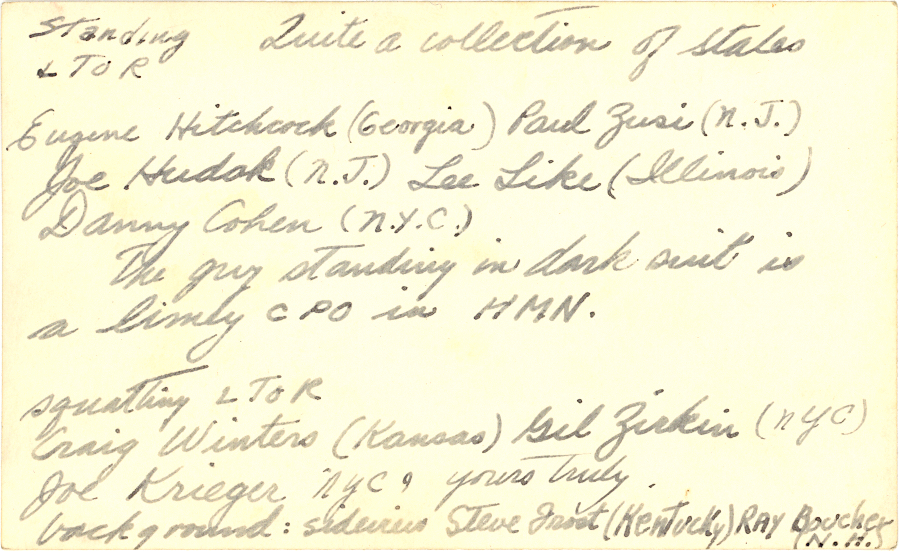 Standing Quite a collection of states
L TO R
Eugene Hitchcock (Georgia) Paul Zusi (N.J.)
Joe Hudok (N.J.) Lee Like (Illinois)
Danny Cohen (N.Y.C.)
The guy standing in dark suit is
a limey CPO in HMN.
squatting L TO R
Craig Winters (Kansas) Gil Zirkin (NYC)
Joe Krieger NYC & yours truly.
background: Steve Frost (Kentucky) RAY Boucher
(N.H.)